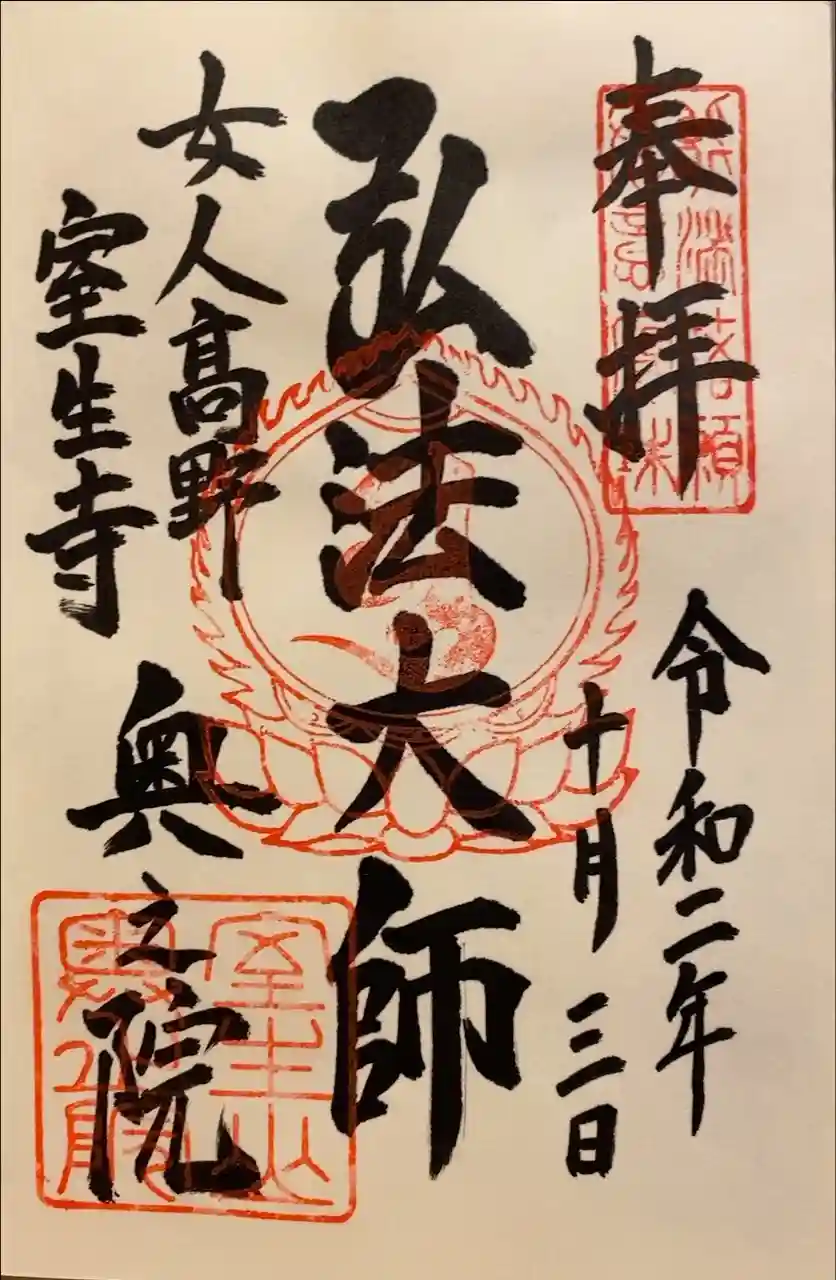 奉拝
令和二年
十月三日
弘法大師
女人高野
室生寺
奥之院
室生山